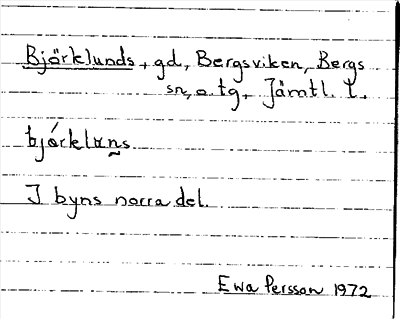 Björklunds, gd, Bergsviken, Bergs
sn, o. tg, Jämtl. l.
bjó̤rklʊn̰s
I byns norra del.
Ewa Persson 1972